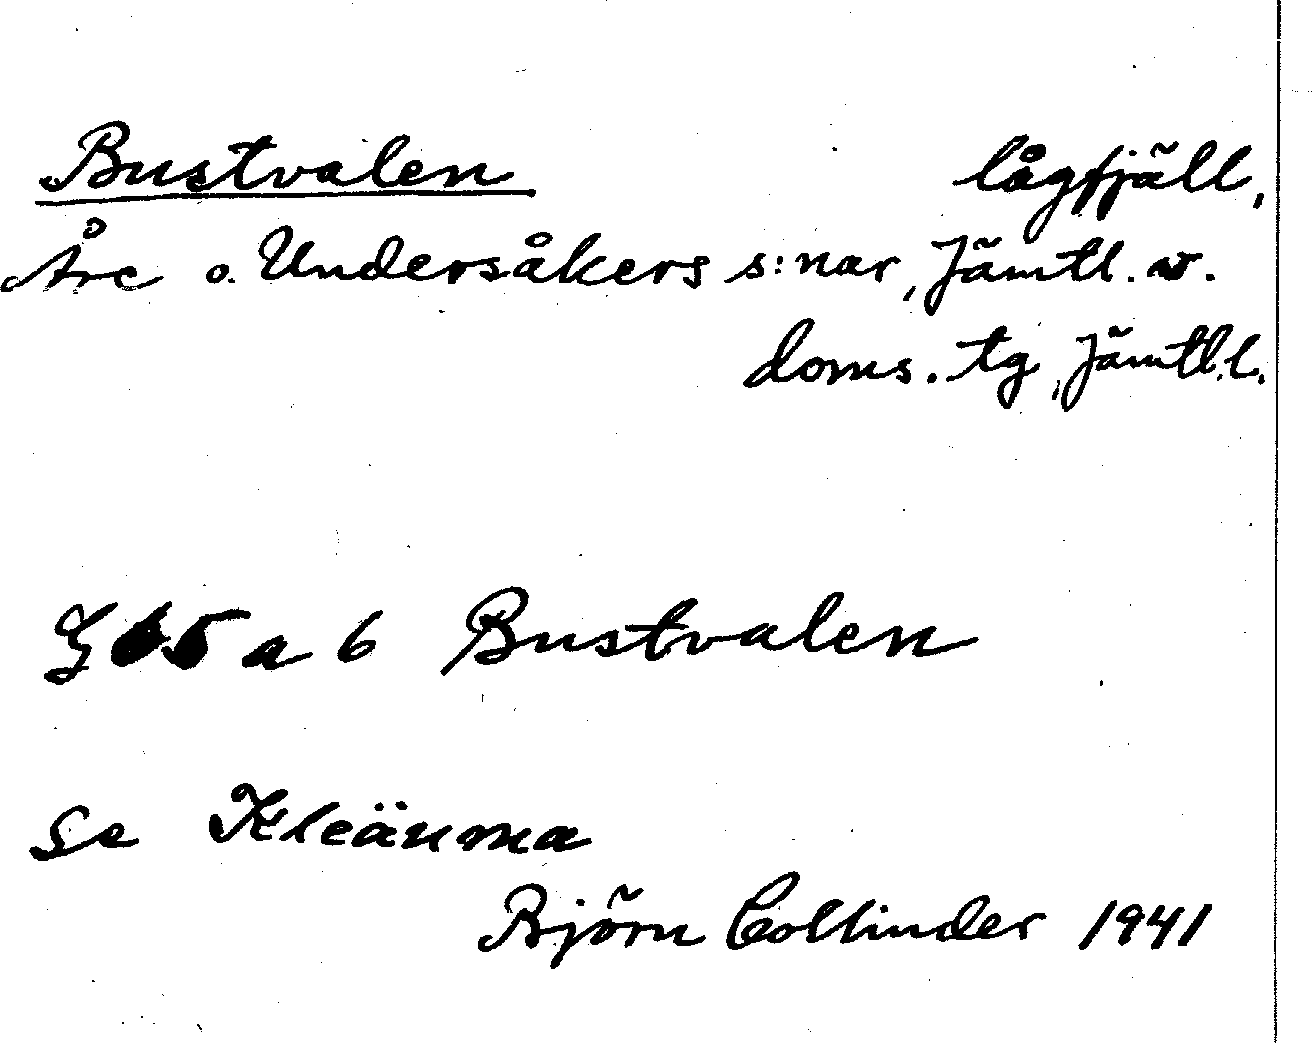 Bustvalen lågfjäll,
Åre o. Undersåkers s:nar, Jämtl. v.
doms. tg, Jämtl. l.
a 6 Bustvalen
Se Kleäuma
Björn Collinder 1941